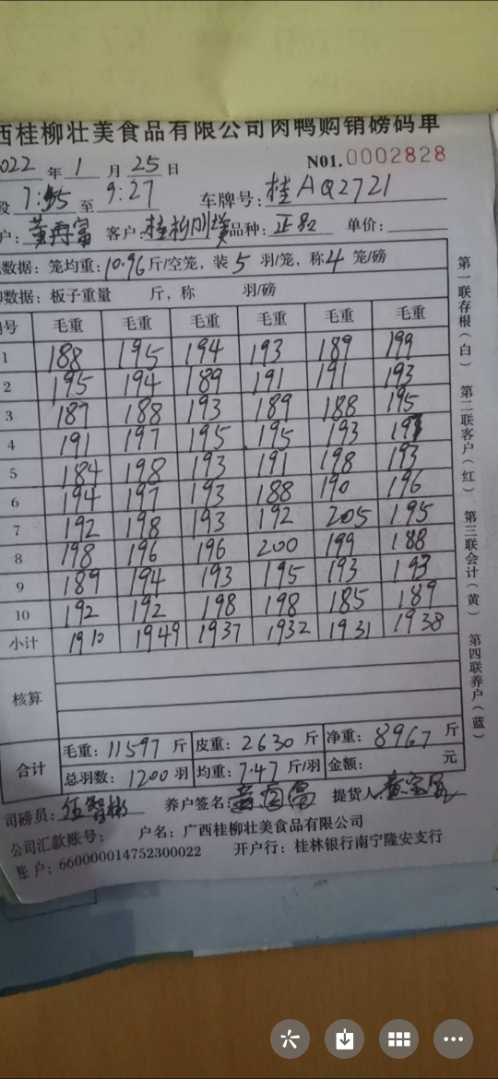 西桂柳壮美食品有限公司肉鸭购销磅码单
022 年 1 月 25 日 N01.0002828
段 7:55 至 9:27 车牌号:桂AQ2721
户:黄再富 客户:桂柳 品种:正 单价:
数据:笼均重:10.96斤/空笼,装5羽/笼,称4笼/磅
数据:板子重量 斤,称 羽/磅
号 毛重 毛重 毛重 毛重 毛重 毛重
1 188 195 194 193 189 199
2 195 194 189 191 191 193
3 187 188 193 189 188 195
4 191 197 195 195 193
5 184 198 193 191 198 193
6 194 197 193 188 190 196
7 192 198 193 192 205 195
8 198 196 196 200 199 188
9 189 194 193 195 193 193
10 192 192 198 198 185 189
小计 1910 1949 1937 1932 1931 1938
核算
合计 毛重:11597 斤 皮重:2630 斤 净重:8967 斤
总羽数:1200 羽 均重:7.47 斤/羽 金额: 元
司磅员: 养户签名: 提货人
公司汇款账号: 户名:广西桂柳壮美食品有限公司
账户:660000014752300022 开户行:桂林银行南宁隆安支行
第一联存根(白)
第二联客户(红)
第三联会计(黄)
第四联养户(蓝)